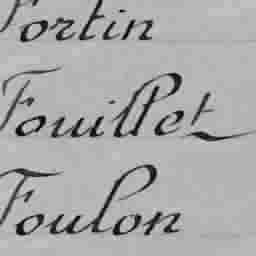 Fortin
Fouillet
Foulon